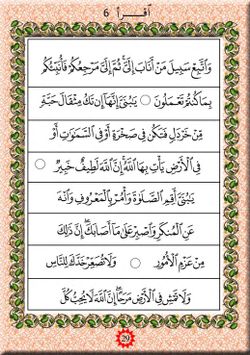 أقرأ 6
وَاتَّبِعْ سَبِيلَ مَنْ أَنَابَ إِلَيَّ ثُمَّ إِلَيَّ مَرْجِعُكُمْ فَأُنَبِّئُكُم
بِمَا كُنتُمْ تَعْمَلُونَ ○ يَابُنَيَّ إِنَّهَا إِن تَكُ مِثْقَالَ حَبَّةٍ
مِّنْ خَرْدَلٍ فَتَكُن فِي صَخْرَةٍ أَوْ فِي السَّمَاوَاتِ أَوْ
فِي الْأَرْضِ يَأْتِ بِهَا اللَّهُ إِنَّ اللَّهَ لَطِيفٌ خَبِيرٌ ○
يَابُنَيَّ أَقِمِ الصَّلَاةَ وَأْمُرْ بِالْمَعْرُوفِ وَانْهَ
عَنِ الْمُنكَرِ وَاصْبِرْ عَلَى مَا أَصَابَكَ إِنَّ ذَلِكَ
مِنْ عَزْمِ الْأُمُورِ ○ وَلَا تُصَعِّرْ خَدَّكَ لِلنَّاسِ
وَلَا تَمْشِ فِي الْأَرْضِ مَرَحًا إِنَّ اللَّهَ لَا يُحِبُّ كُلَّ
29